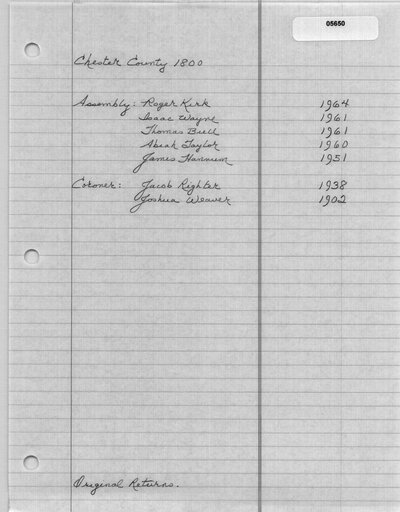 05650
Chester County 1800
Assembly: Roger Kirk 1964
Isaac Wayne 1961
Thomas Bull 1961
Abiah Taylor 1960
James Hannum 1951
Coroner: Jacob Righter 1938
Joshua Weaver 1902
Original Returns.